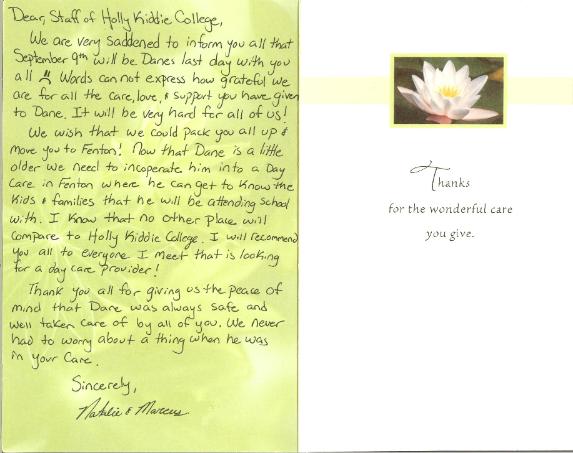 Dear, Staff of Holly Kiddie College,
We are very saddened to inform you all that
September 9th will be Danes last day with you
all !! Words can not express how grateful we
are for all the care, love, & support you have given
to Dane. It will be very hard for all of us!
We wish that we could pack you all up &
move you to Fenton! Now that Dane is a little
older we need to incoperate him into a Day
Care in Fenton where he can get to Know the
Kids & families that he will be attending School
with. I Know that no other place will
Compare to Holly Kiddie College. I will recommend
you all to everyone I meet that is looking
for a day care provider!
Thank you all for giving us the peace of
mind that Dane was always safe and
well taken care of by all of you. We never
had to worry about a thing when he was
in your Care.
Sincerely,
Natalie & Marcus
Thanks
for the wonderful care
you give.